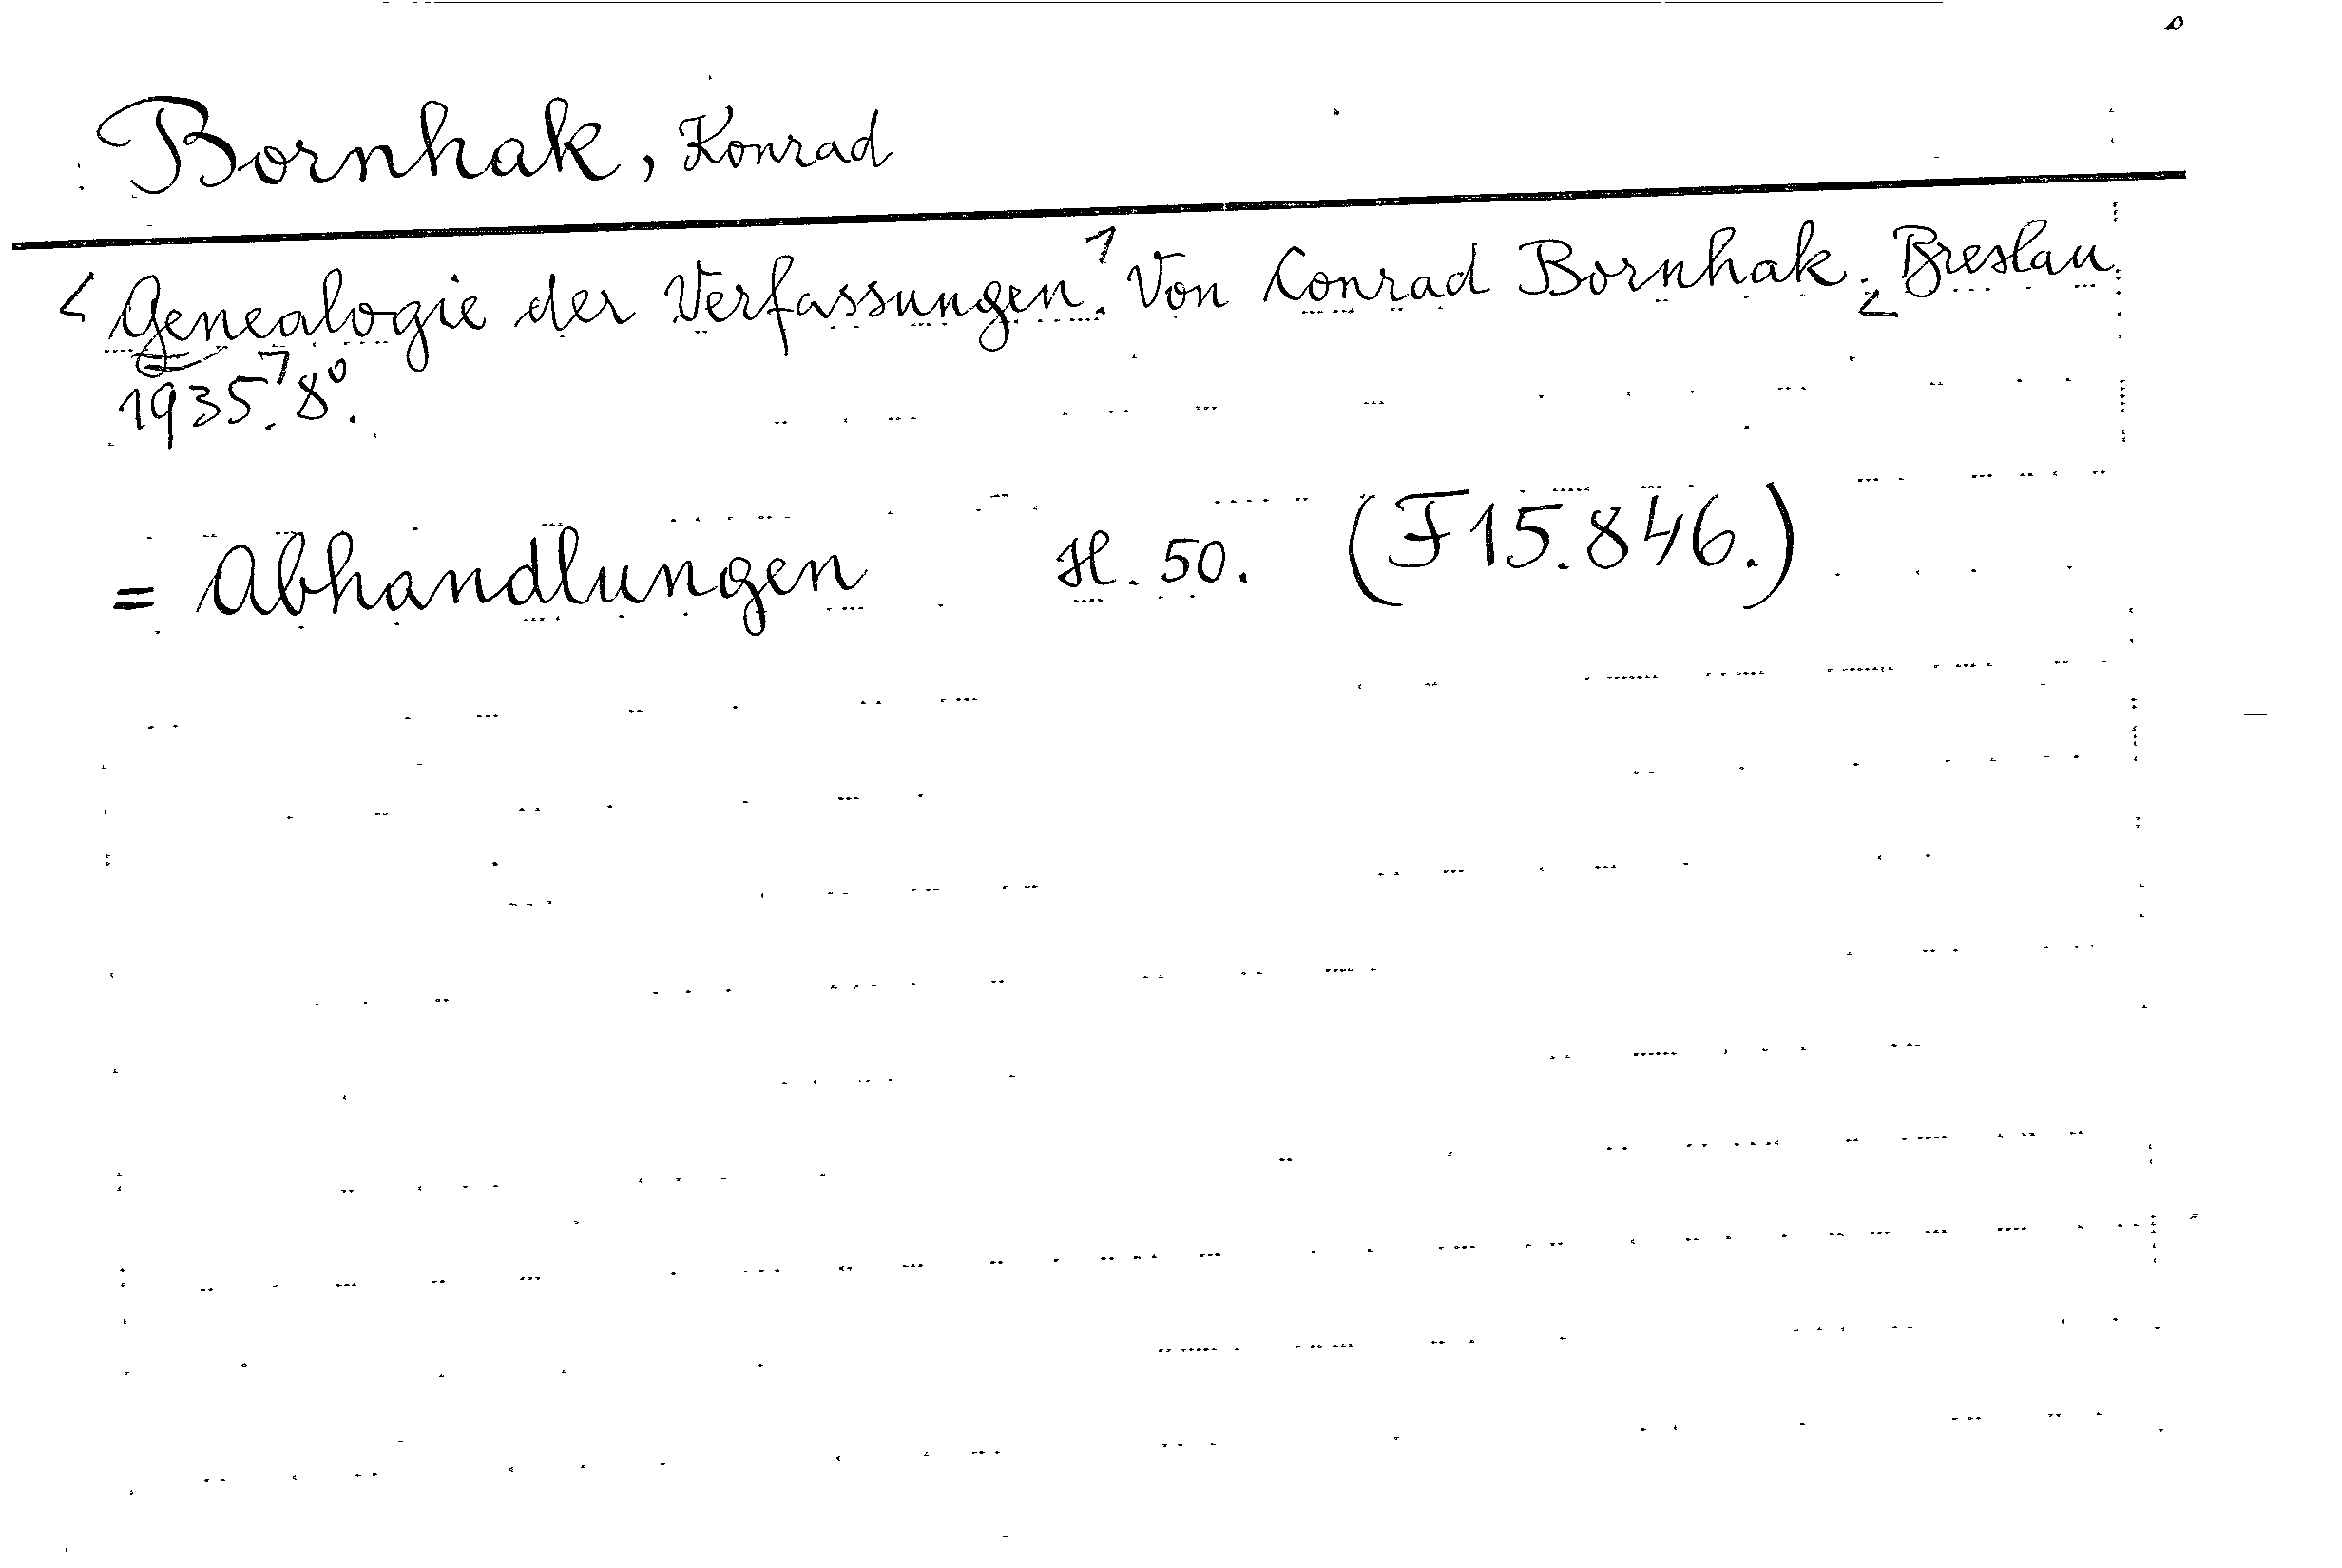 Bornhak, Konrad
< Genealogie der Verfassungen.> Von Conrad Bornhak. < Breslau
1935.> 8°.
= Abhandlungen H. 50. (F 15.846.)